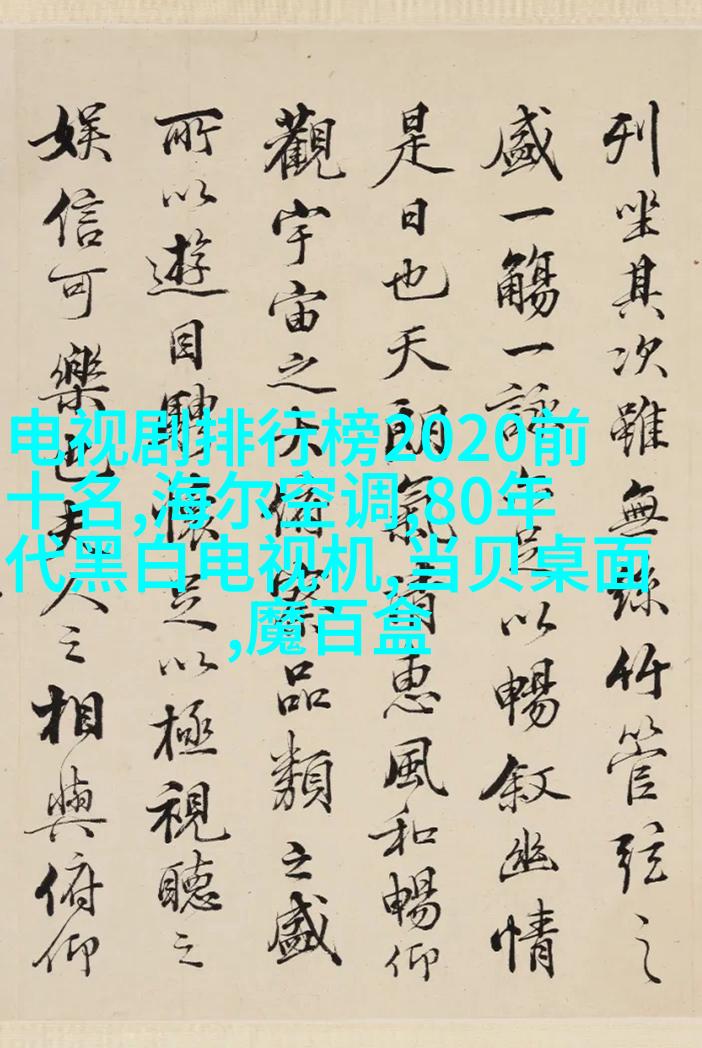 列坐其次雖無絲竹管弦之
盛一觴一詠亦足以暢叙幽情
是日也天朗氣清惠風和暢仰
觀宇宙之大俯察品類之盛
所以遊目騁懷足以極視聽之
娱信可樂也夫人之相與俯仰
电视剧排行榜2020前
十名,海尔空调,80年
代黑白电视机,当贝桌面
,魔百盒